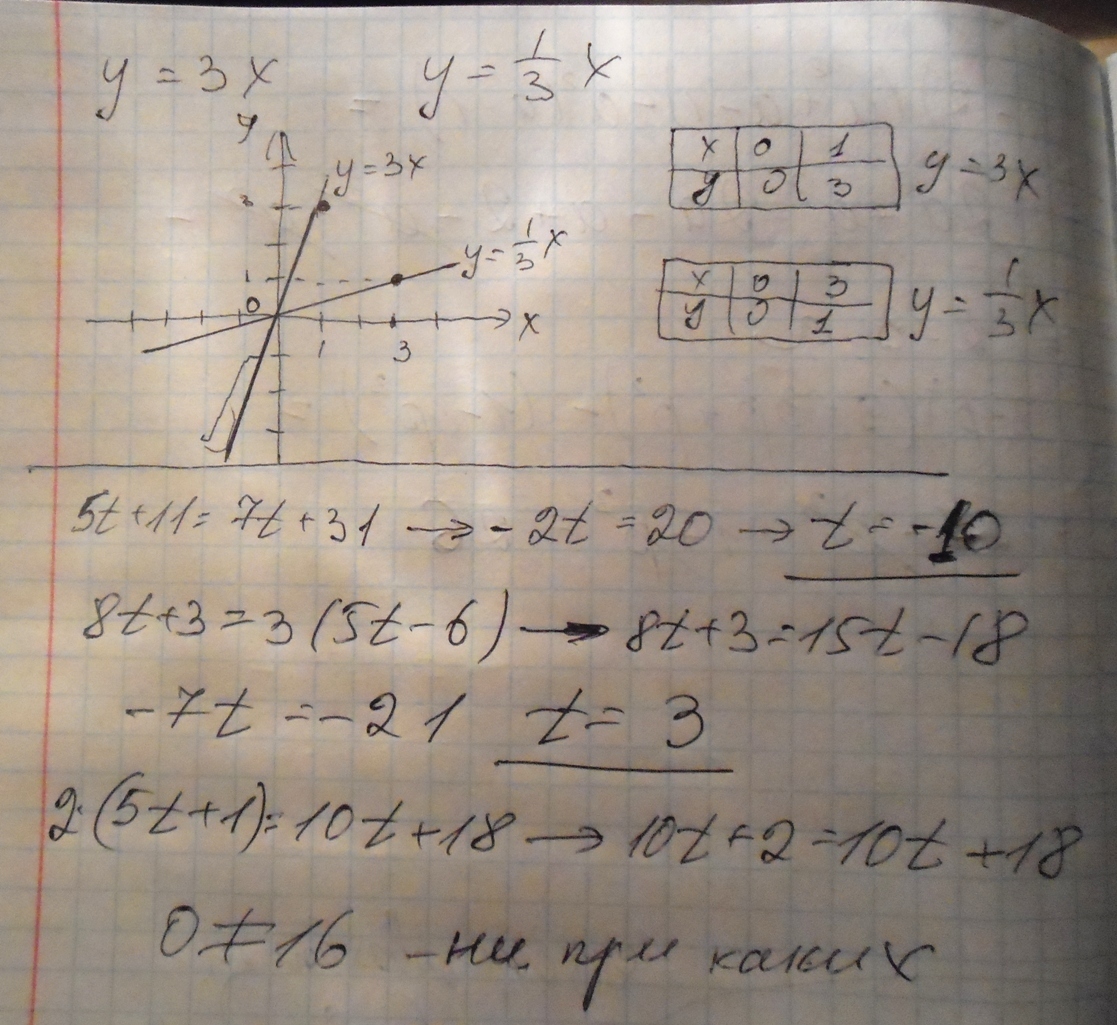 y = 3x y = 1/3 x
y
y = 3x
3
1
y = 1/3 x
0
x
1 3
x 0 1
y 0 3
y = 3x
x 0 3
y 0 1
y = 1/3 x
5t+11 = 7t+31 → -2t = 20 → t = -10
8t+3 = 3(5t-6) → 8t+3 = 15t-18
-7t = -21 t = 3
2·(5t+1) = 10t+18 → 10t+2 = 10t+18
0 ≠ 16 - ни при каких